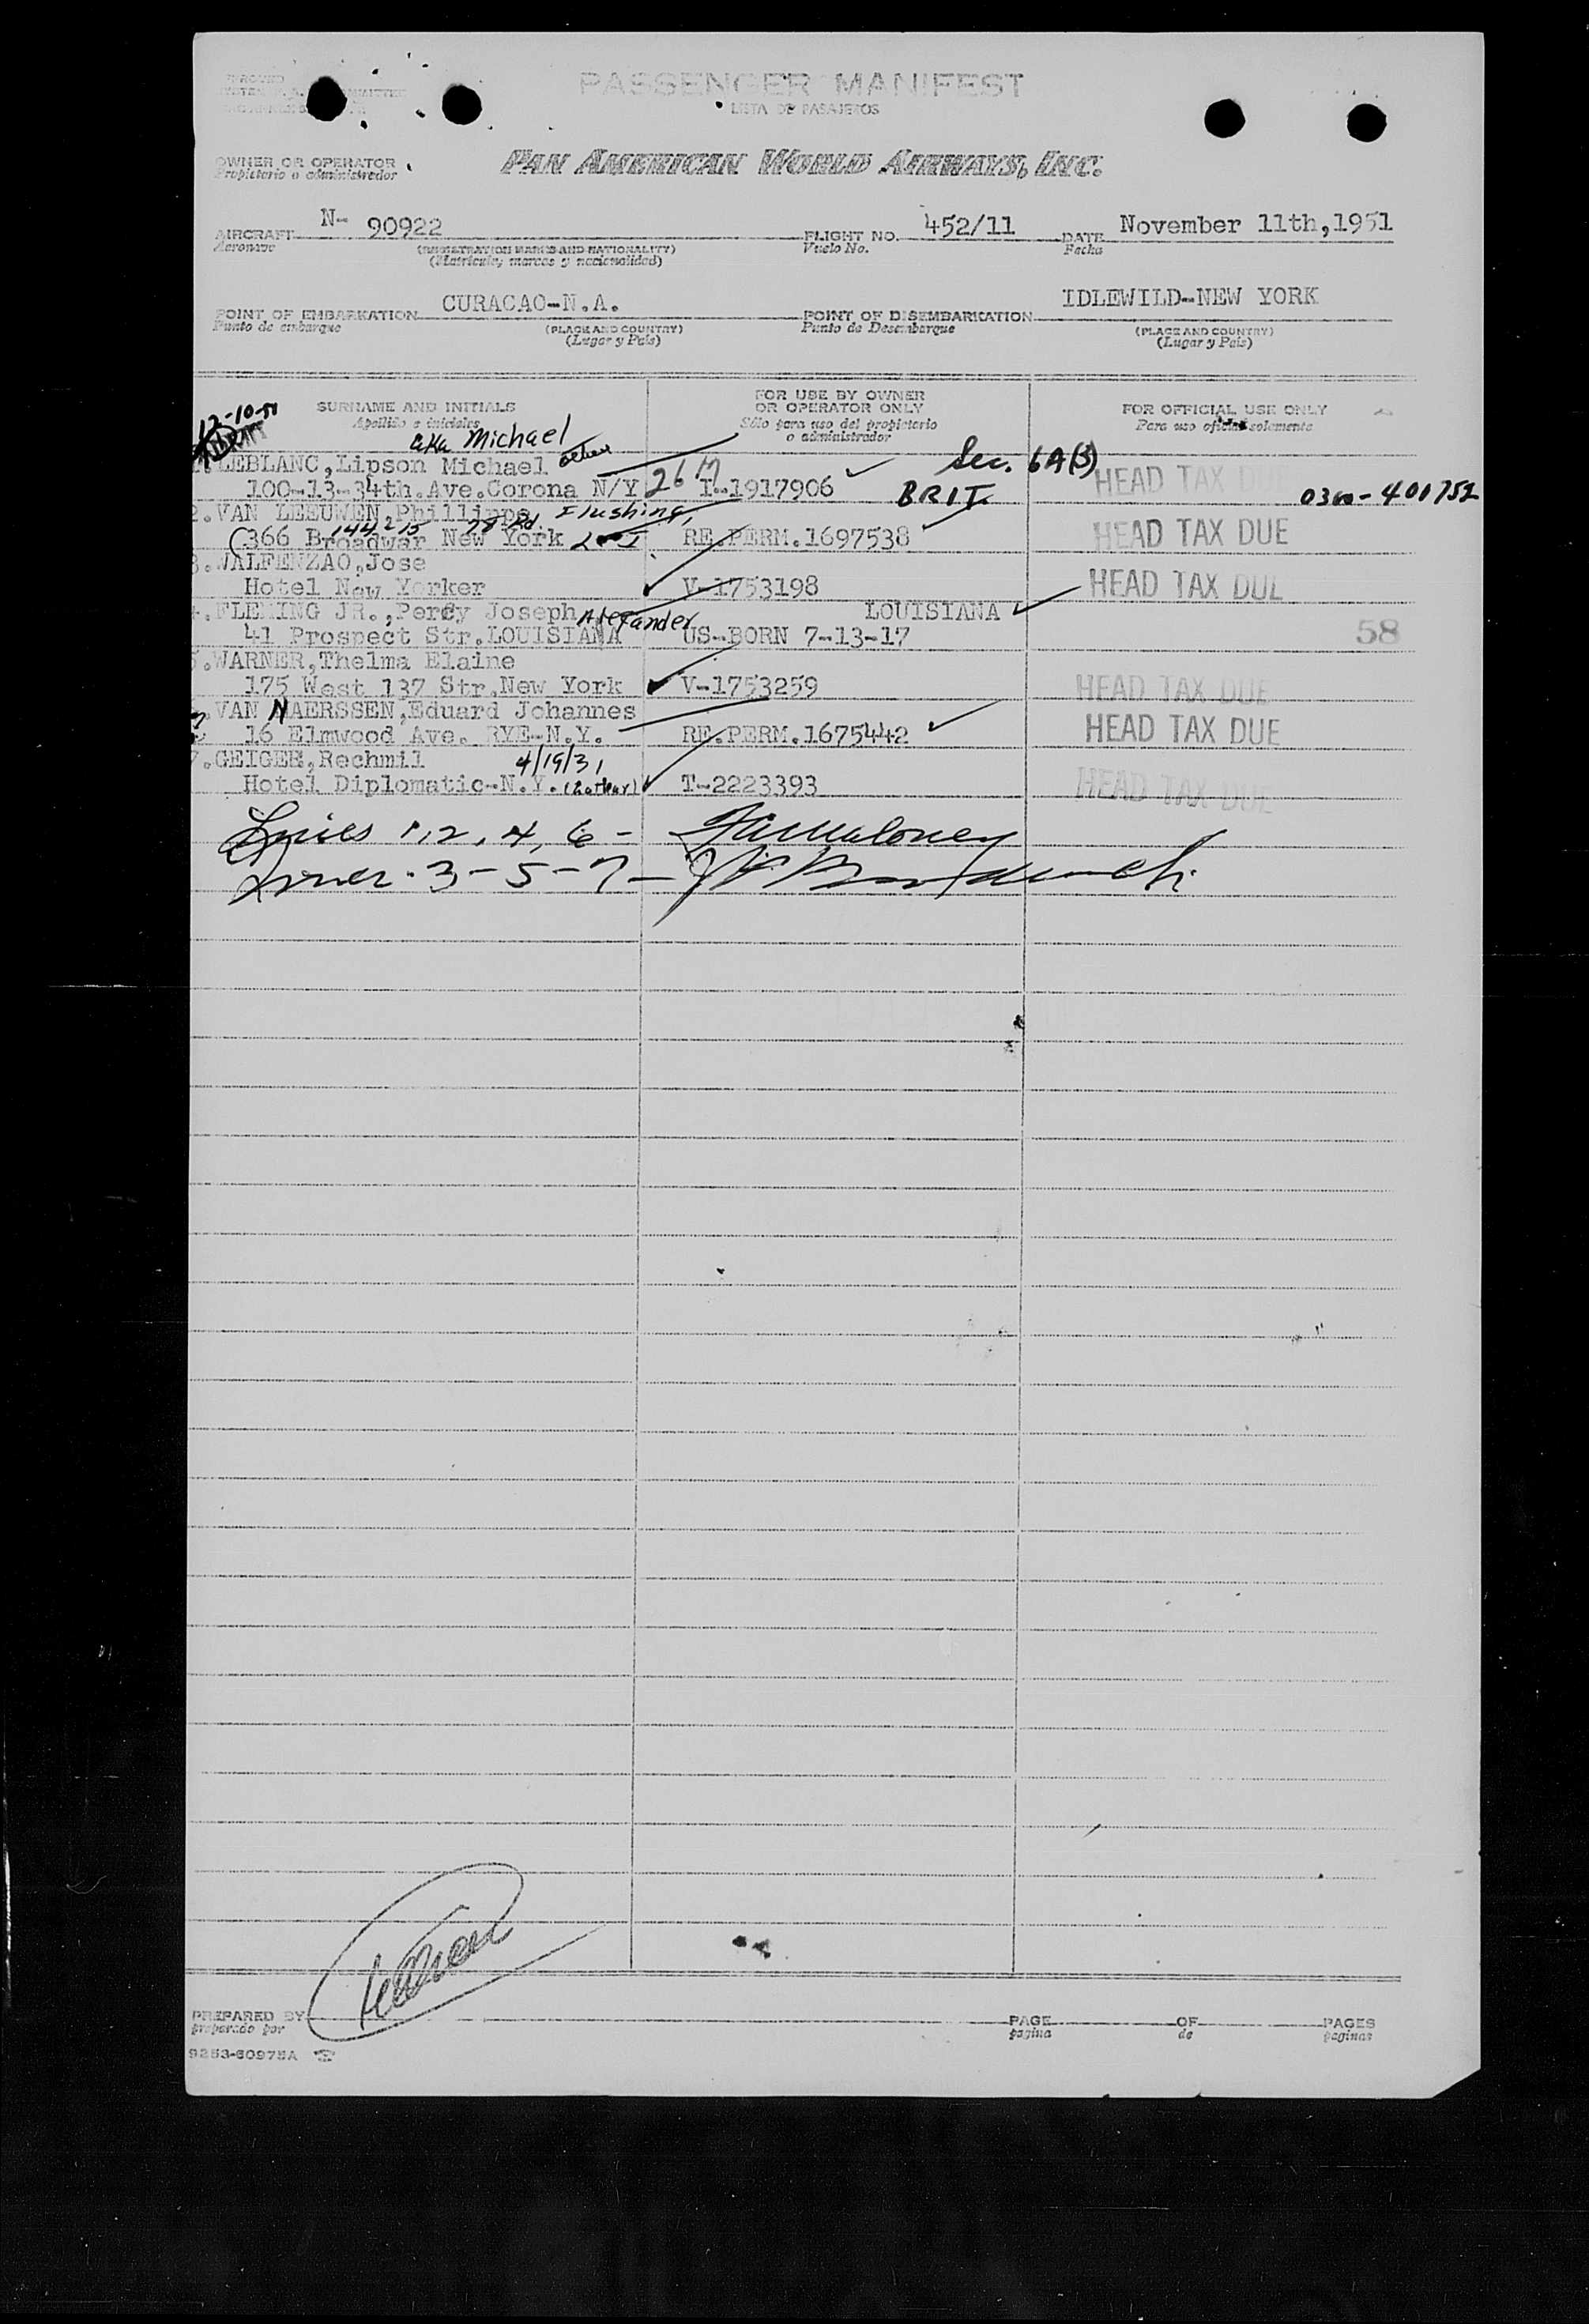 PASSENGER MANIFEST
LISTA DE PASAJEROS
OWNER OR OPERATOR
Propietario o administrador
PAN AMERICAN WORLD AIRWAYS, INC.
AIRCRAFT N- 90922 FLIGHT NO. 452/11 DATE November 11th,1951
Aeronave (REGISTRATION MARKS AND NATIONALITY) Vuelo No. Fecha
(Matrícula, marcas y nacionalidad)
POINT OF EMBARKATION CURACAO-N.A. POINT OF DISEMBARKATION IDLEWILD-NEW YORK
Punto de embarque (PLACE AND COUNTRY) Punto de Desembarque (PLACE AND COUNTRY)
(Lugar y País) (Lugar y País)
SURNAME AND INITIALS FOR USE BY OWNER OR OPERATOR ONLY FOR OFFICIAL USE ONLY
Apellido e iniciales Sólo para uso del propietario o administrador Para uso oficial solamente
12-10-51
aka Michael
LEBLANC,Lipson Michael Sec. 6A(3) HEAD TAX DUE
100-13-34th.Ave.Corona N/Y 2617 I-1917906 BRIT. 0300-401752
2.VAN LEEUWEN,Phillippe Flushing,
144 25 78 Rd.
366 Broadwar New York L I RE.PERM.1697538 HEAD TAX DUE
3.WALFENZAO,Jose
Hotel New Yorker V-1753198 HEAD TAX DUE
4.FLEMING JR.,Percy Joseph Alexander LOUISIANA
41 Prospect Str.LOUISIANA US-BORN 7-13-17 58
5.WARNER,Thelma Elaine
175 West 137 Str.New York V-1753259 HEAD TAX DUE
VAN NAERSSEN,Eduard Johannes
16 Elmwood Ave. RYE-N.Y. RE.PERM.1675442 HEAD TAX DUE
7.GEIGER,Rechmil 4/19/31
Hotel Diplomatic-N.Y. T-2223393 HEAD TAX DUE
Lines 1,2,4,6-
Lines 3-5-7-
PREPARED BY PAGE OF PAGES
preparado por pagina de paginas
9253-60975A